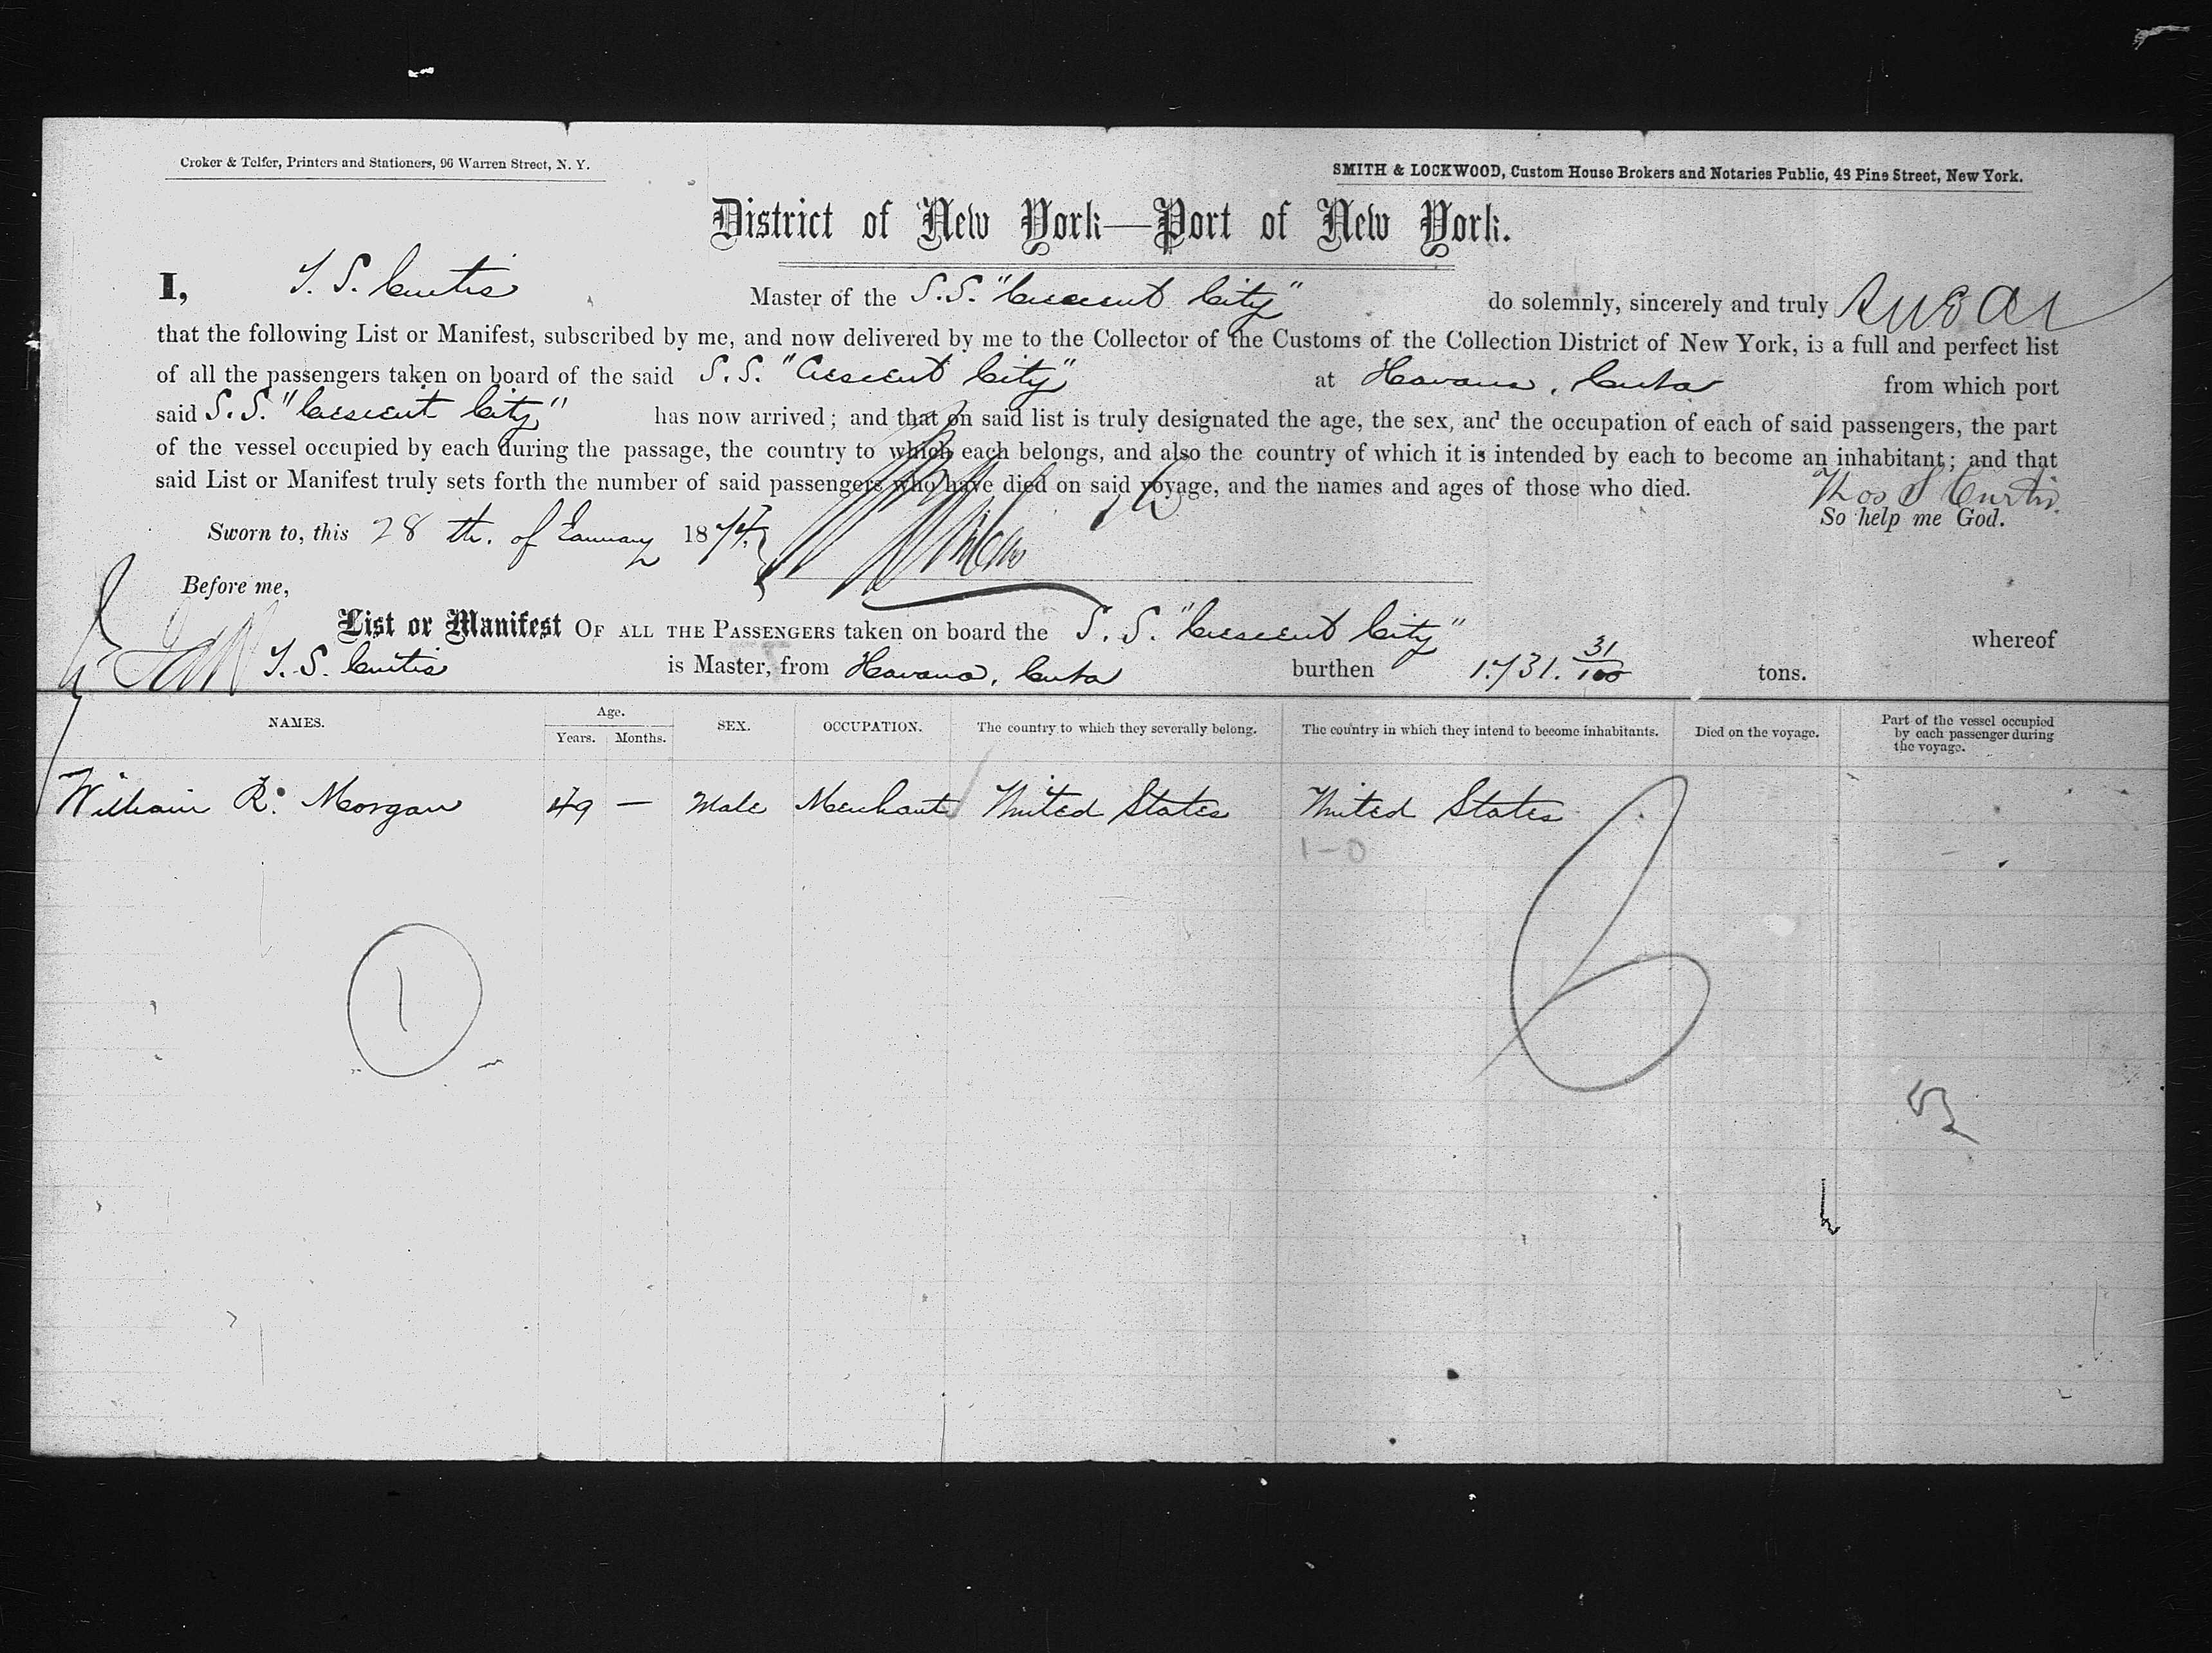 Croker & Telfer, Printers and Stationers, 96 Warren Street, N. Y.
SMITH & LOCKWOOD, Custom House Brokers and Notaries Public, 43 Pine Street, New York.
District of New York—Port of New York.
I, T. S. Curtis Master of the S.S. "Crescent City" do solemnly, sincerely and truly swear
that the following List or Manifest, subscribed by me, and now delivered by me to the Collector of the Customs of the Collection District of New York, is a full and perfect list
of all the passengers taken on board of the said S.S. "Crescent City" at Havana, Cuba from which port
said S.S. "Crescent City" has now arrived; and that on said list is truly designated the age, the sex, and the occupation of each of said passengers, the part
of the vessel occupied by each during the passage, the country to which each belongs, and also the country of which it is intended by each to become an inhabitant; and that
said List or Manifest truly sets forth the number of said passengers who have died on said voyage, and the names and ages of those who died. Thos S Curtis
So help me God.
Sworn to, this 28 th. of January 1874
Before me,
List or Manifest OF ALL THE PASSENGERS taken on board the S. S. "Crescent City" whereof
T. S. Curtis is Master, from Havana, Cuba burthen 1.731. 31/100 tons.
NAMES. Age. Years. Months. SEX. OCCUPATION. The country to which they severally belong. The country in which they intend to become inhabitants. Died on the voyage. Part of the vessel occupied by each passenger during the voyage.
William R. Morgan 49 — Male Merchant United States United States
1-0
1
6